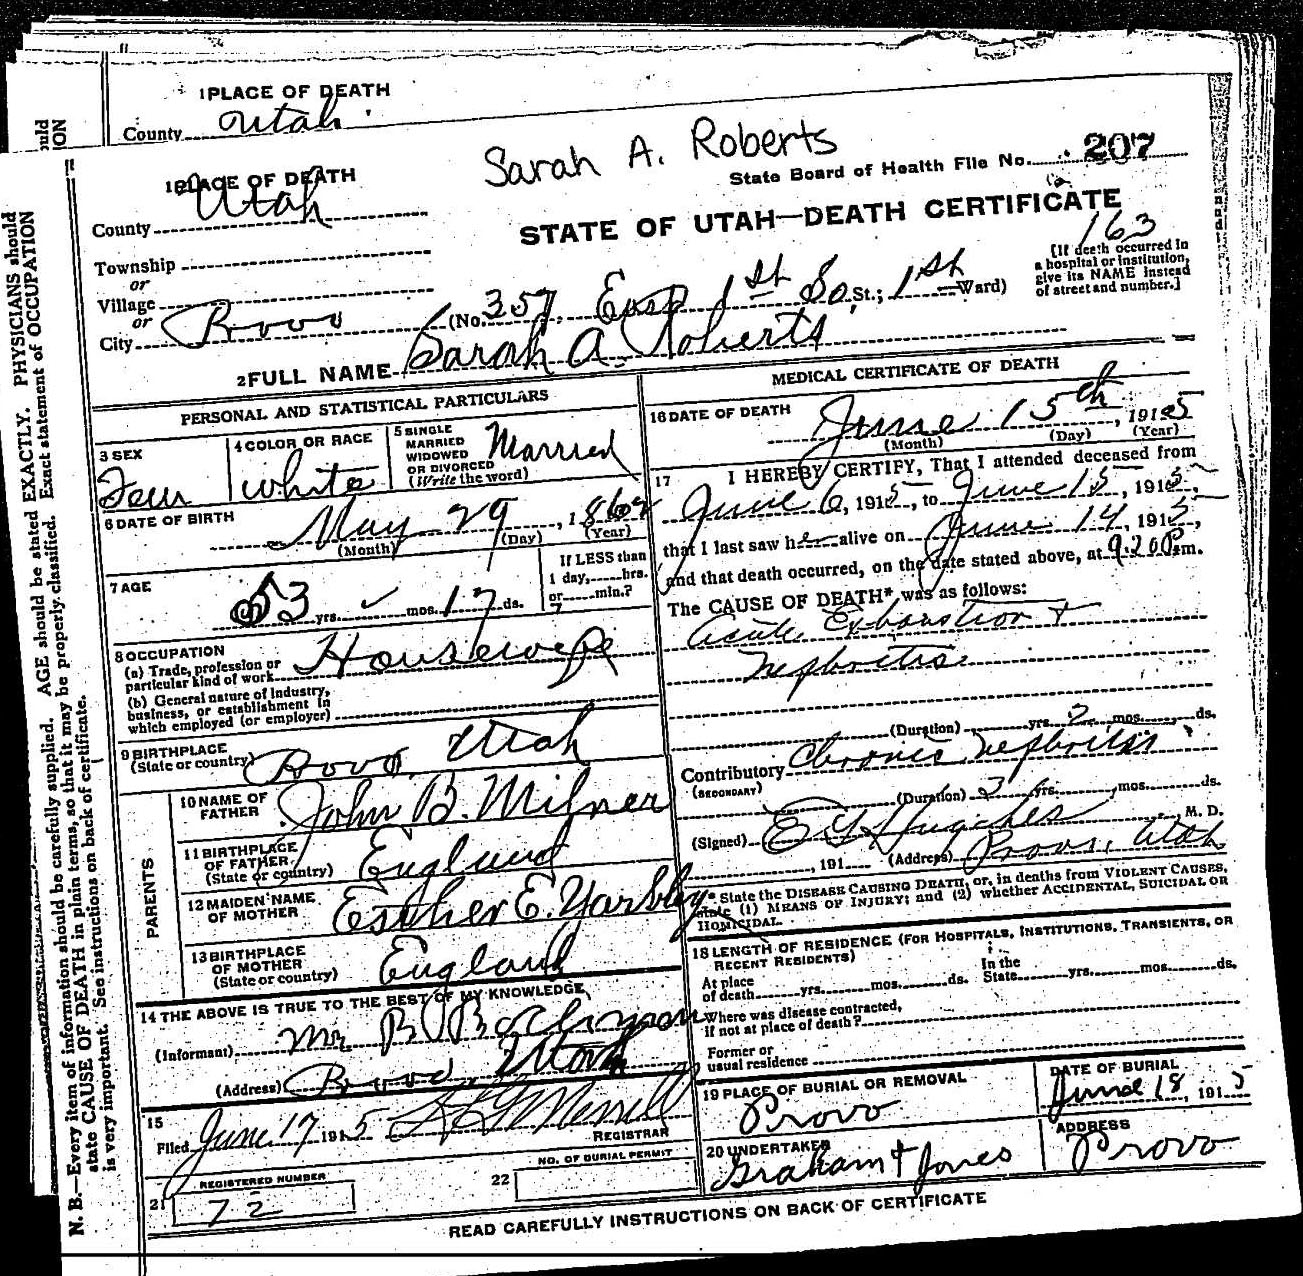 1 PLACE OF DEATH
County Utah
Sarah A. Roberts
State Board of Health File No. 207
1 PLACE OF DEATH
County Utah
STATE OF UTAH—DEATH CERTIFICATE
163
Township
or
Village
or
City Provo (No. 357, East 1st So. St.; 1st Ward)
[If death occurred in
a hospital or institution,
give its NAME instead
of street and number.]
2 FULL NAME Sarah A. Roberts
PERSONAL AND STATISTICAL PARTICULARS
3 SEX
Fem
4 COLOR OR RACE
White
5 SINGLE
MARRIED
WIDOWED
OR DIVORCED
(Write the word)
Married
6 DATE OF BIRTH
May 29, 1862
(Month) (Day) (Year)
7 AGE
53 yrs. mos. 17 ds.
If LESS than
1 day, hrs.
or min.?
8 OCCUPATION
(a) Trade, profession or
particular kind of work Housewife
(b) General nature of industry,
business, or establishment in
which employed (or employer)
9 BIRTHPLACE
(State or country) Provo, Utah
PARENTS
10 NAME OF
FATHER John B. Milner
11 BIRTHPLACE
OF FATHER
(State or country) England
12 MAIDEN NAME
OF MOTHER Esther E. Yardley
13 BIRTHPLACE
OF MOTHER
(State or country) England
14 THE ABOVE IS TRUE TO THE BEST OF MY KNOWLEDGE
(Informant) Mr B
(Address) Provo, Utah
15
Filed June 17 1915 Merrill
REGISTRAR
21 REGISTERED NUMBER
72
22 NO. OF BURIAL PERMIT
MEDICAL CERTIFICATE OF DEATH
16 DATE OF DEATH
June 15th, 1915
(Month) (Day) (Year)
17 I HEREBY CERTIFY, That I attended deceased from
June 6, 1915, to June 15, 1915,
that I last saw her alive on June 14, 1915,
and that death occurred, on the date stated above, at 9.20 P.m.
The CAUSE OF DEATH* was as follows:
Acute Exhaustion +
Nephritis
(Duration) yrs. 2 mos. ds.
Contributory Chronic Nephritis
(SECONDARY)
(Duration) 2 yrs. mos. ds.
(Signed) E G Hughes M. D.
, 191 (Address) Provo, Utah
* State the DISEASE CAUSING DEATH, or, in deaths from VIOLENT CAUSES,
state (1) MEANS OF INJURY; and (2) whether ACCIDENTAL, SUICIDAL OR
HOMICIDAL.
18 LENGTH OF RESIDENCE (FOR HOSPITALS, INSTITUTIONS, TRANSIENTS, OR
RECENT RESIDENTS)
At place
of death yrs. mos. ds.
In the
State yrs. mos. ds.
Where was disease contracted,
if not at place of death?
Former or
usual residence
19 PLACE OF BURIAL OR REMOVAL
Provo
DATE OF BURIAL
June 18, 1915
20 UNDERTAKER
Graham & Jones
ADDRESS
Provo
READ CAREFULLY INSTRUCTIONS ON BACK OF CERTIFICATE
N. B.—Every item of information should be carefully supplied. AGE should be stated EXACTLY. PHYSICIANS should
state CAUSE OF DEATH in plain terms, so that it may be properly classified. Exact statement of OCCUPATION
is very important. See instructions on back of certificate.